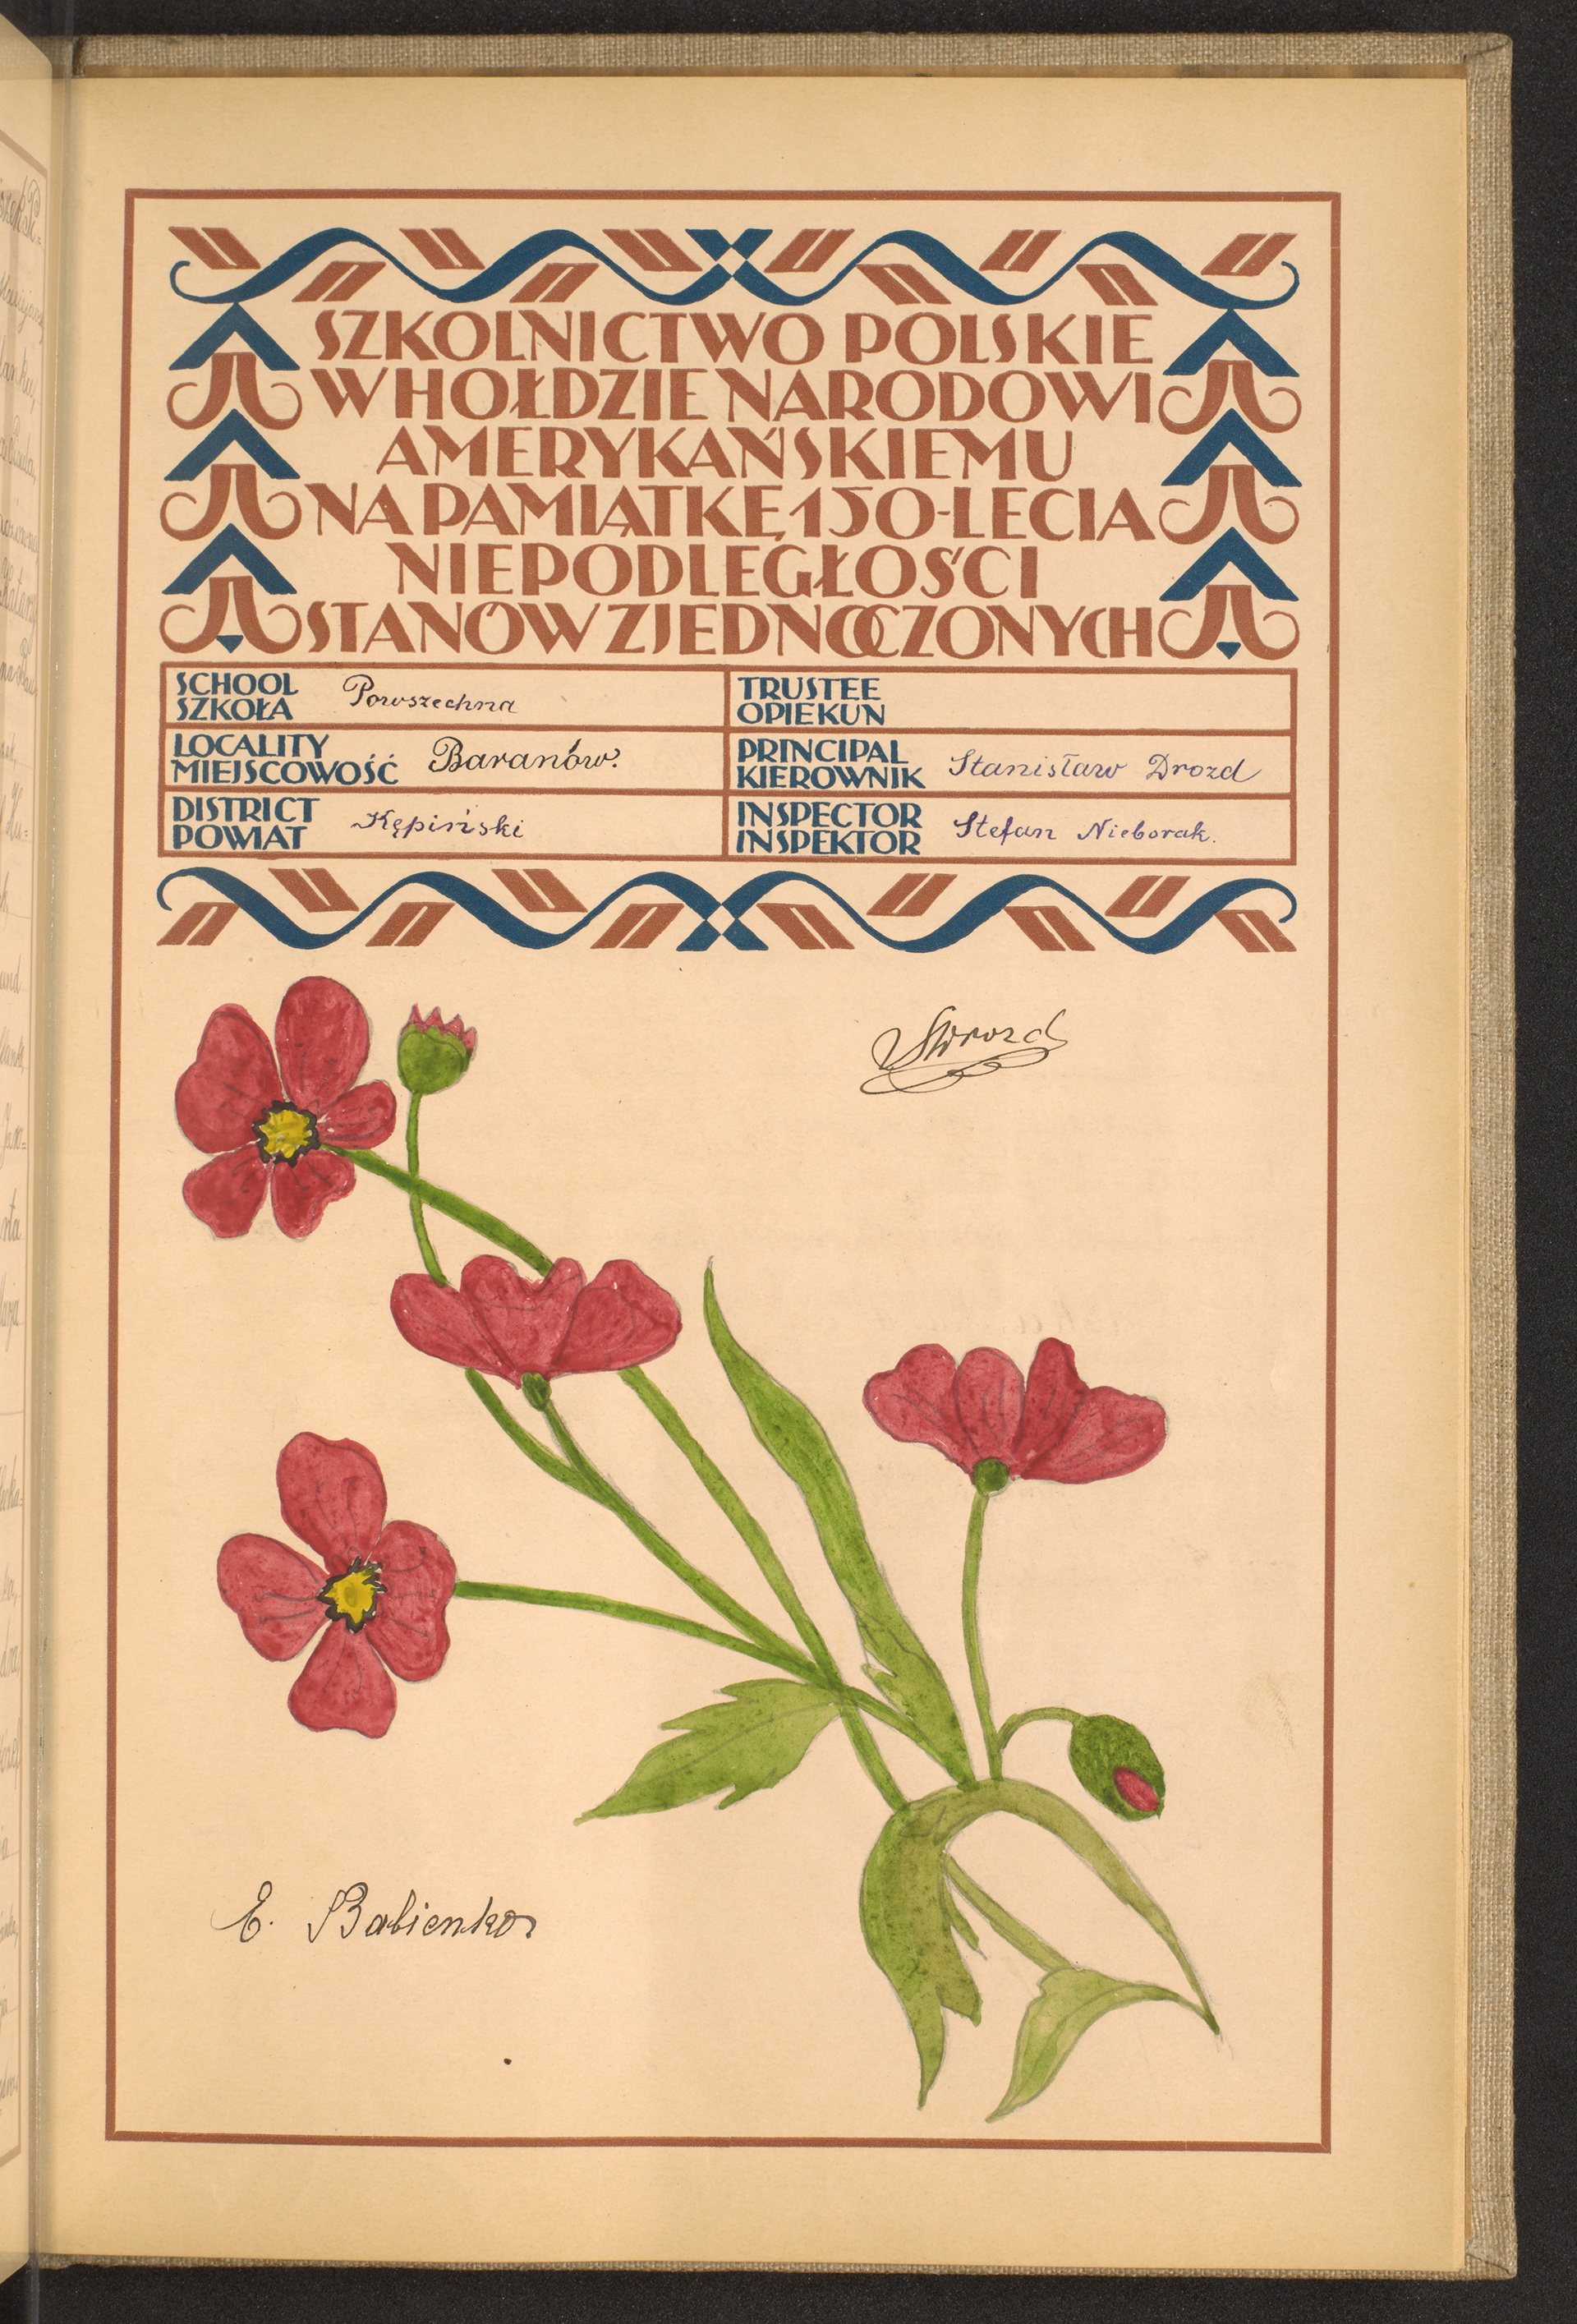 SZKOLNICTWO POLSKIE
W HOŁDZIE NARODOWI
AMERYKAŃSKIEMU
NA PAMIĄTKĘ 150-LECIA
NIEPODLEGŁOŚCI
STANÓW ZJEDNOCZONYCH
SCHOOL
SZKOŁA Powszechna
TRUSTEE
OPIEKUN
LOCALITY
MIEJSCOWOŚĆ Baranów.
PRINCIPAL
KIEROWNIK Stanisław Drozd
DISTRICT
POWIAT Kępiński
INSPECTOR
INSPEKTOR Stefan Nieborak.
SDrozd
E. Babienko